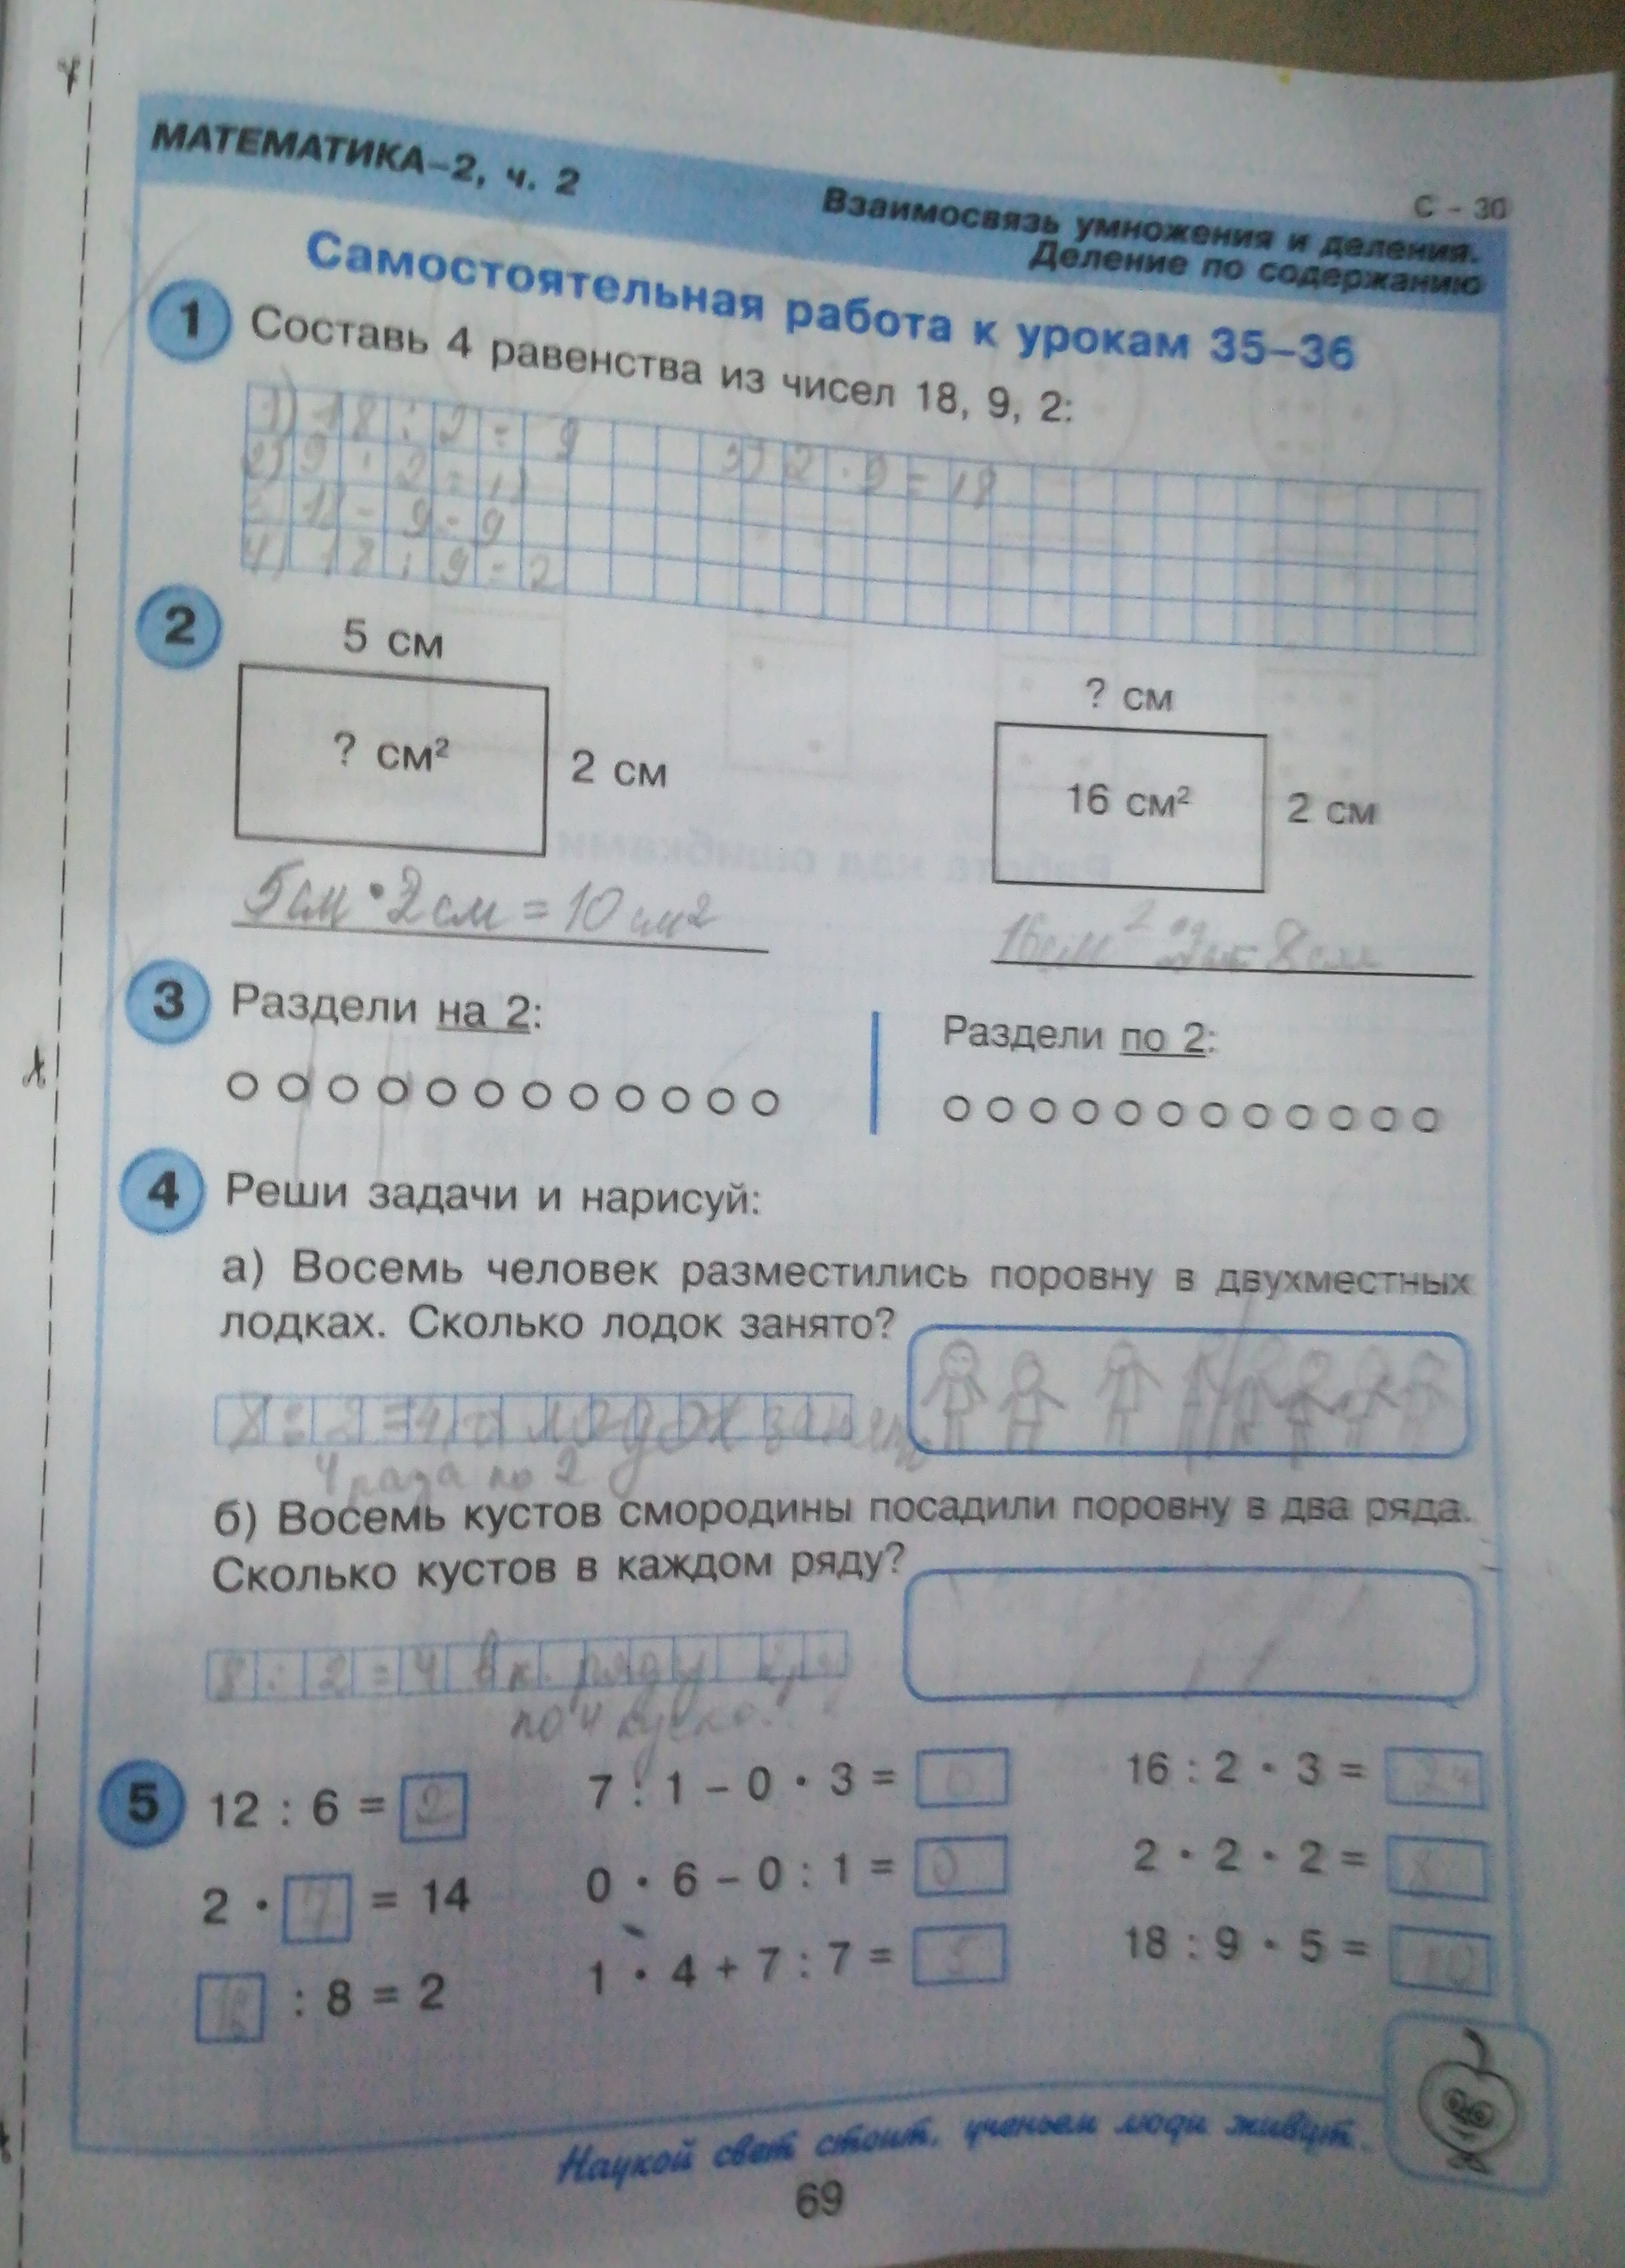 МАТЕМАТИКА–2, ч. 2
С – 30
Взаимосвязь умножения и деления.
Деление по содержанию
Самостоятельная работа к урокам 35–36
1 Составь 4 равенства из чисел 18, 9, 2:
1) 18 : 2 = 9
2) 9 · 2 = 18
3) 2 · 9 = 18
18 - 9 = 9
4) 18 : 9 = 2
2
5 см
? см²
2 см
? см
16 см²
2 см
5см · 2см = 10 см²
16см² : 2см = 8см
3 Раздели на 2:
Раздели по 2:
4 Реши задачи и нарисуй:
а) Восемь человек разместились поровну в двухместных
лодках. Сколько лодок занято?
8 : 2 = 4
4 раза по 2
б) Восемь кустов смородины посадили поровну в два ряда.
Сколько кустов в каждом ряду?
8 : 2 = 4 в к. ряду
по 4
5
12 : 6 = 2
2 · 7 = 14
: 8 = 2
7 : 1 – 0 · 3 =
0 · 6 – 0 : 1 = 0
1 · 4 + 7 : 7 = 5
16 : 2 · 3 = 24
2 · 2 · 2 = 8
18 : 9 · 5 = 10
Наукой свет стоит, ученьем люди живут.
69